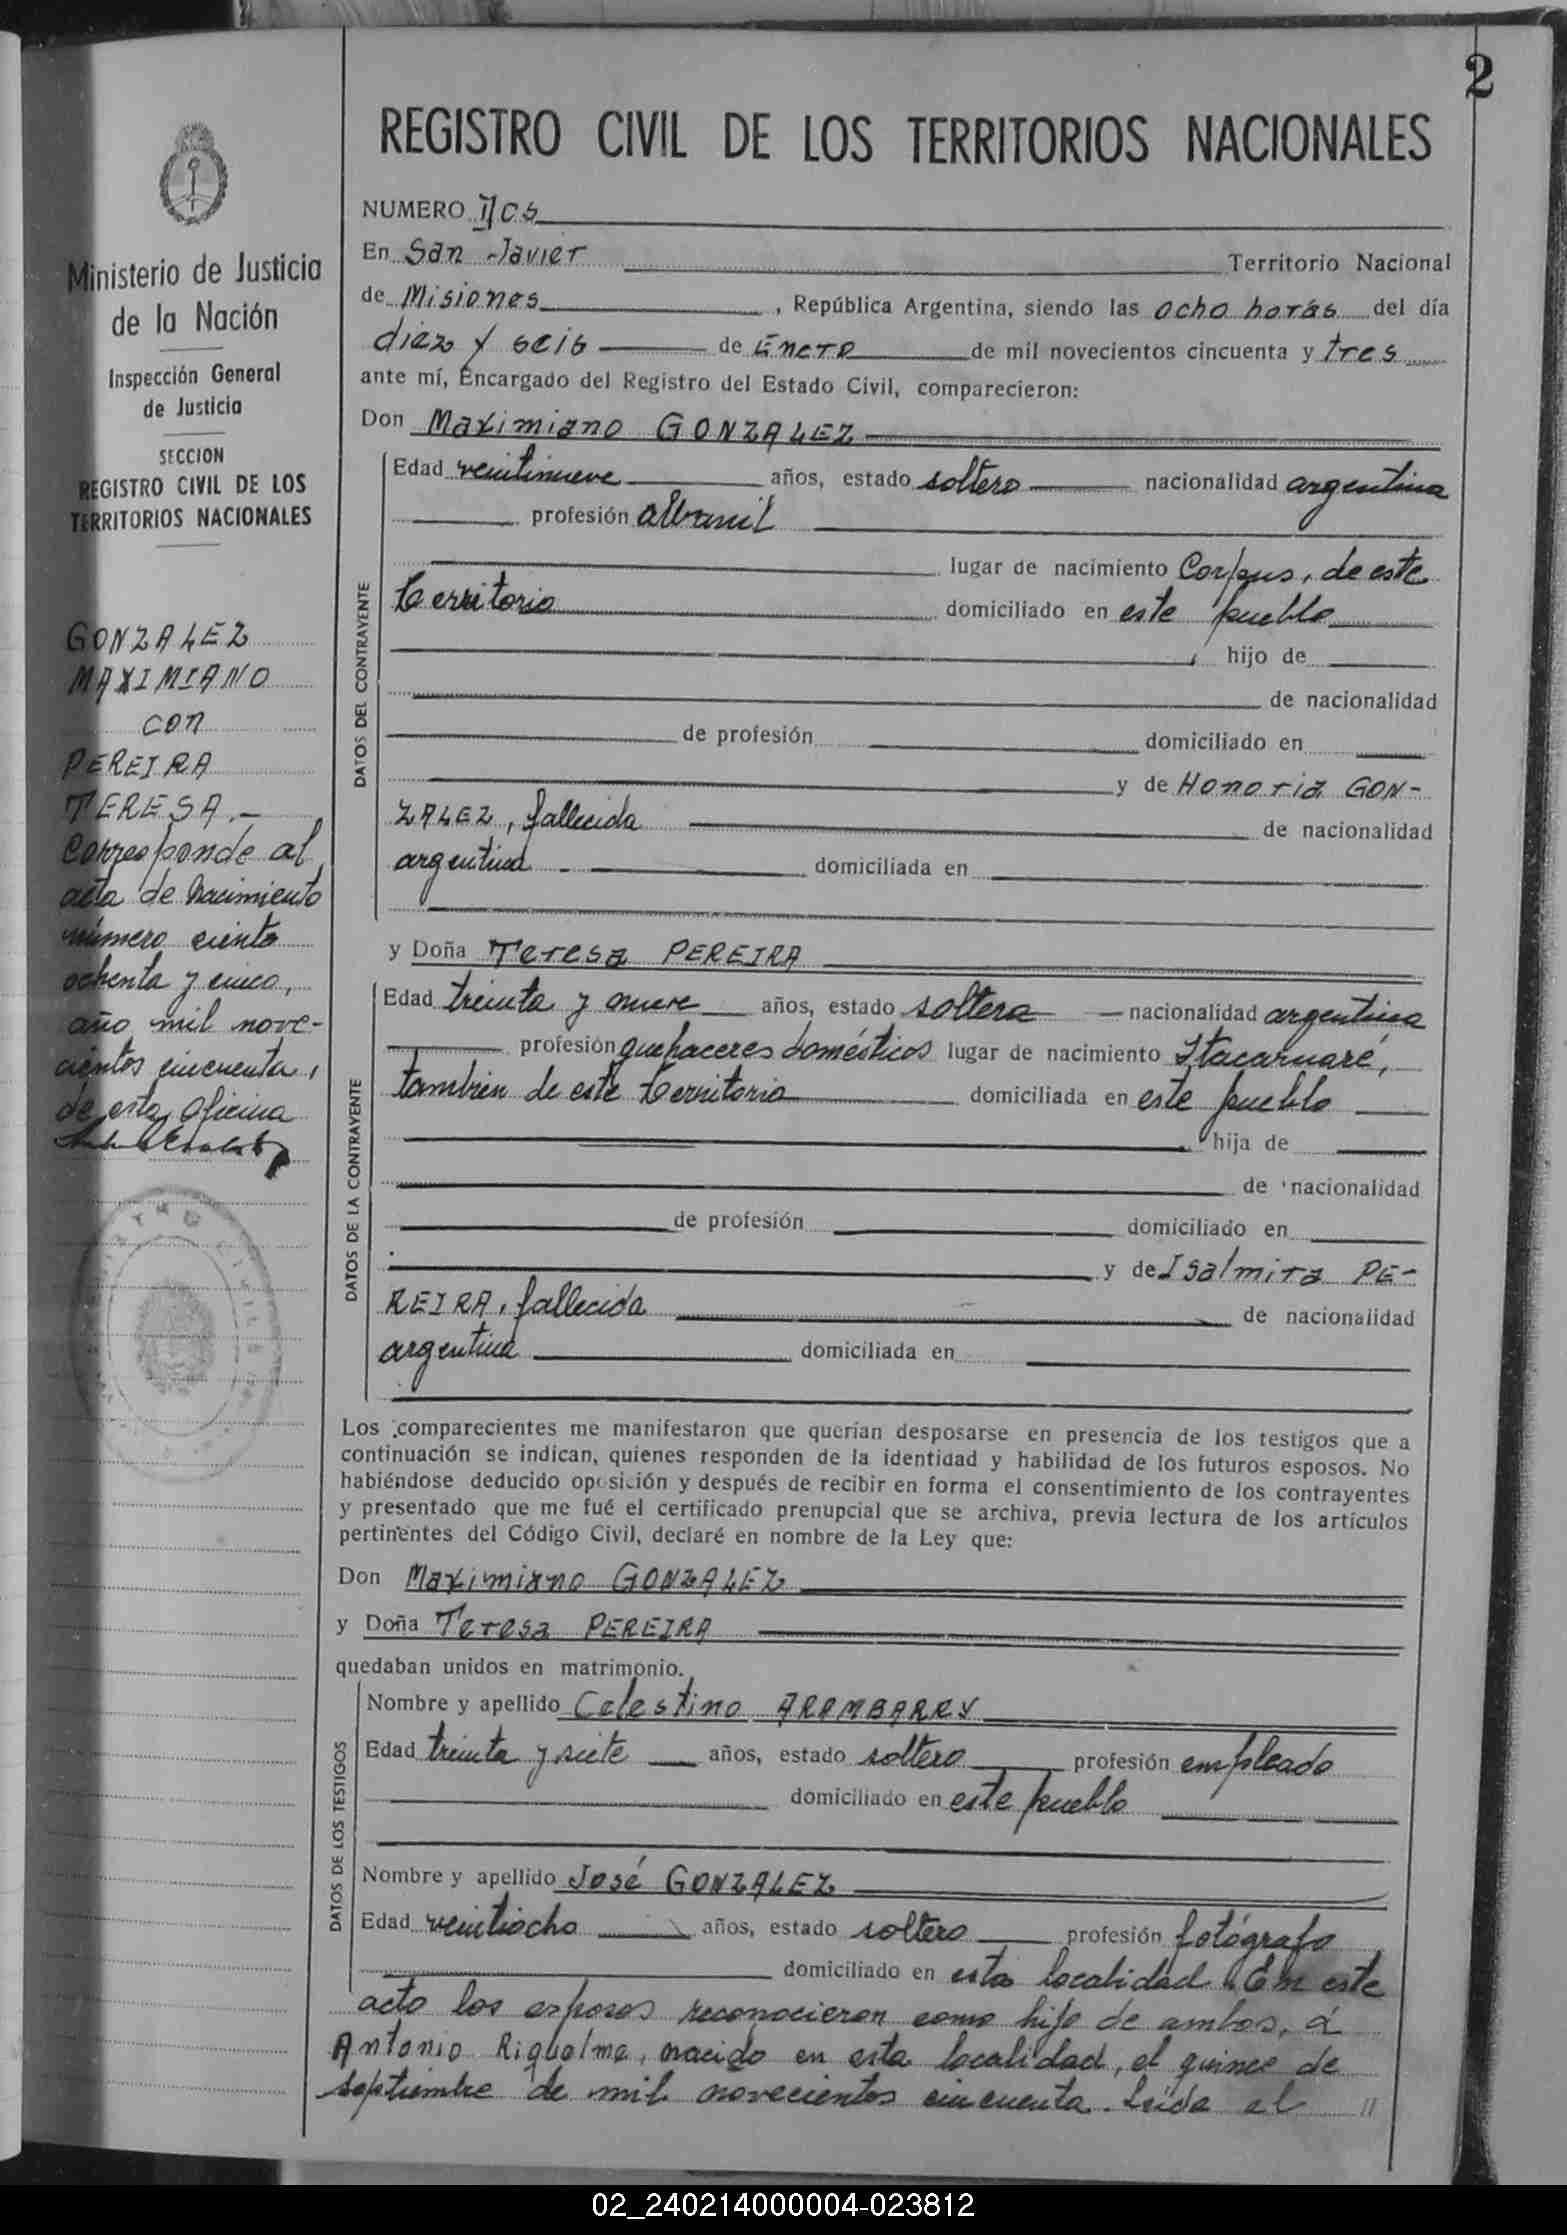 2
REGISTRO CIVIL DE LOS TERRITORIOS NACIONALES
Ministerio de Justicia
de la Nación
Inspección General
de Justicia
SECCION
REGISTRO CIVIL DE LOS
TERRITORIOS NACIONALES
GONZALEZ
MAXIMIANO
con
PEREIRA
TERESA.-
Corresponde al
acta de Nacimiento
número ciento
ochenta y cinco,
año mil nove-
cientos cincuenta,
de esta Oficina
NUMERO Dos
En San Javier Territorio Nacional
de Misiones, República Argentina, siendo las ocho horas del día
diez y seis de Enero de mil novecientos cincuenta y tres
ante mí, Encargado del Registro del Estado Civil, comparecieron:
Don Maximiano GONZALEZ
DATOS DEL CONTRAYENTE
Edad veintinueve años, estado soltero nacionalidad argentina
profesión albanil
lugar de nacimiento Corpus, de este
territorio domiciliado en este pueblo
, hijo de
de nacionalidad
de profesión domiciliado en
y de Honoria GON-
ZALEZ, fallecida de nacionalidad
argentina domiciliada en
y Doña Teresa PEREIRA
DATOS DE LA CONTRAYENTE
Edad treinta y nueve años, estado soltera nacionalidad argentina
profesión quehaceres domésticos lugar de nacimiento Itacaruaré,
tambien de este territorio domiciliada en este pueblo
, hija de
de nacionalidad
de profesión domiciliado en
y de Isalmira PE-
REIRA, fallecida de nacionalidad
argentina domiciliada en
Los comparecientes me manifestaron que querían desposarse en presencia de los testigos que a
continuación se indican, quienes responden de la identidad y habilidad de los futuros esposos. No
habiéndose deducido oposición y después de recibir en forma el consentimiento de los contrayentes
y presentado que me fué el certificado prenupcial que se archiva, previa lectura de los artículos
pertinentes del Código Civil, declaré en nombre de la Ley que:
Don Maximiano GONZALEZ
y Doña Teresa PEREIRA
quedaban unidos en matrimonio.
DATOS DE LOS TESTIGOS
Nombre y apellido Celestino ARAMBARRY
Edad treinta y siete años, estado soltero profesión empleado
domiciliado en este pueblo
Nombre y apellido José GONZALEZ
Edad veintiocho años, estado soltero profesión fotógrafo
domiciliado en esta localidad. En este
acto los esposos reconocieron como hijo de ambos, á
Antonio Riquelme, nacido en esta localidad, el quince de
septiembre de mil novecientos cincuenta. Leída el //
02_240214000004-023812